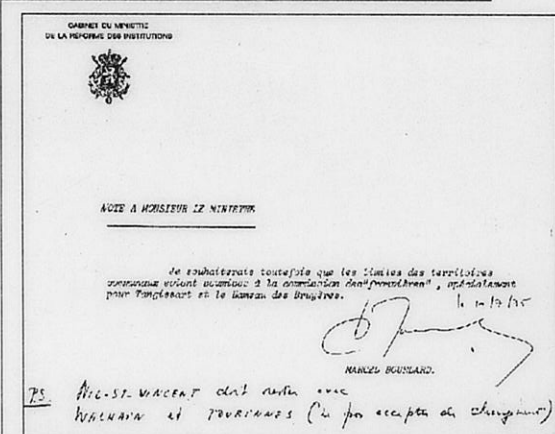 CABINET DU MINISTRE
DE LA RÉFORME DES INSTITUTIONS
NOTE A MONSIEUR LE MINISTRE
Je souhaiterais toutefois que les limites des territoires
communaux soient soumises à la commission des "frontières", spécialement
pour Tangissart et le Hameau des Bruyères.
7/75
MARCEL
P.S. NIL-ST-VINCENT doit rester avec
WALHAIN et TOURINNES (ne pas accepter de changement)